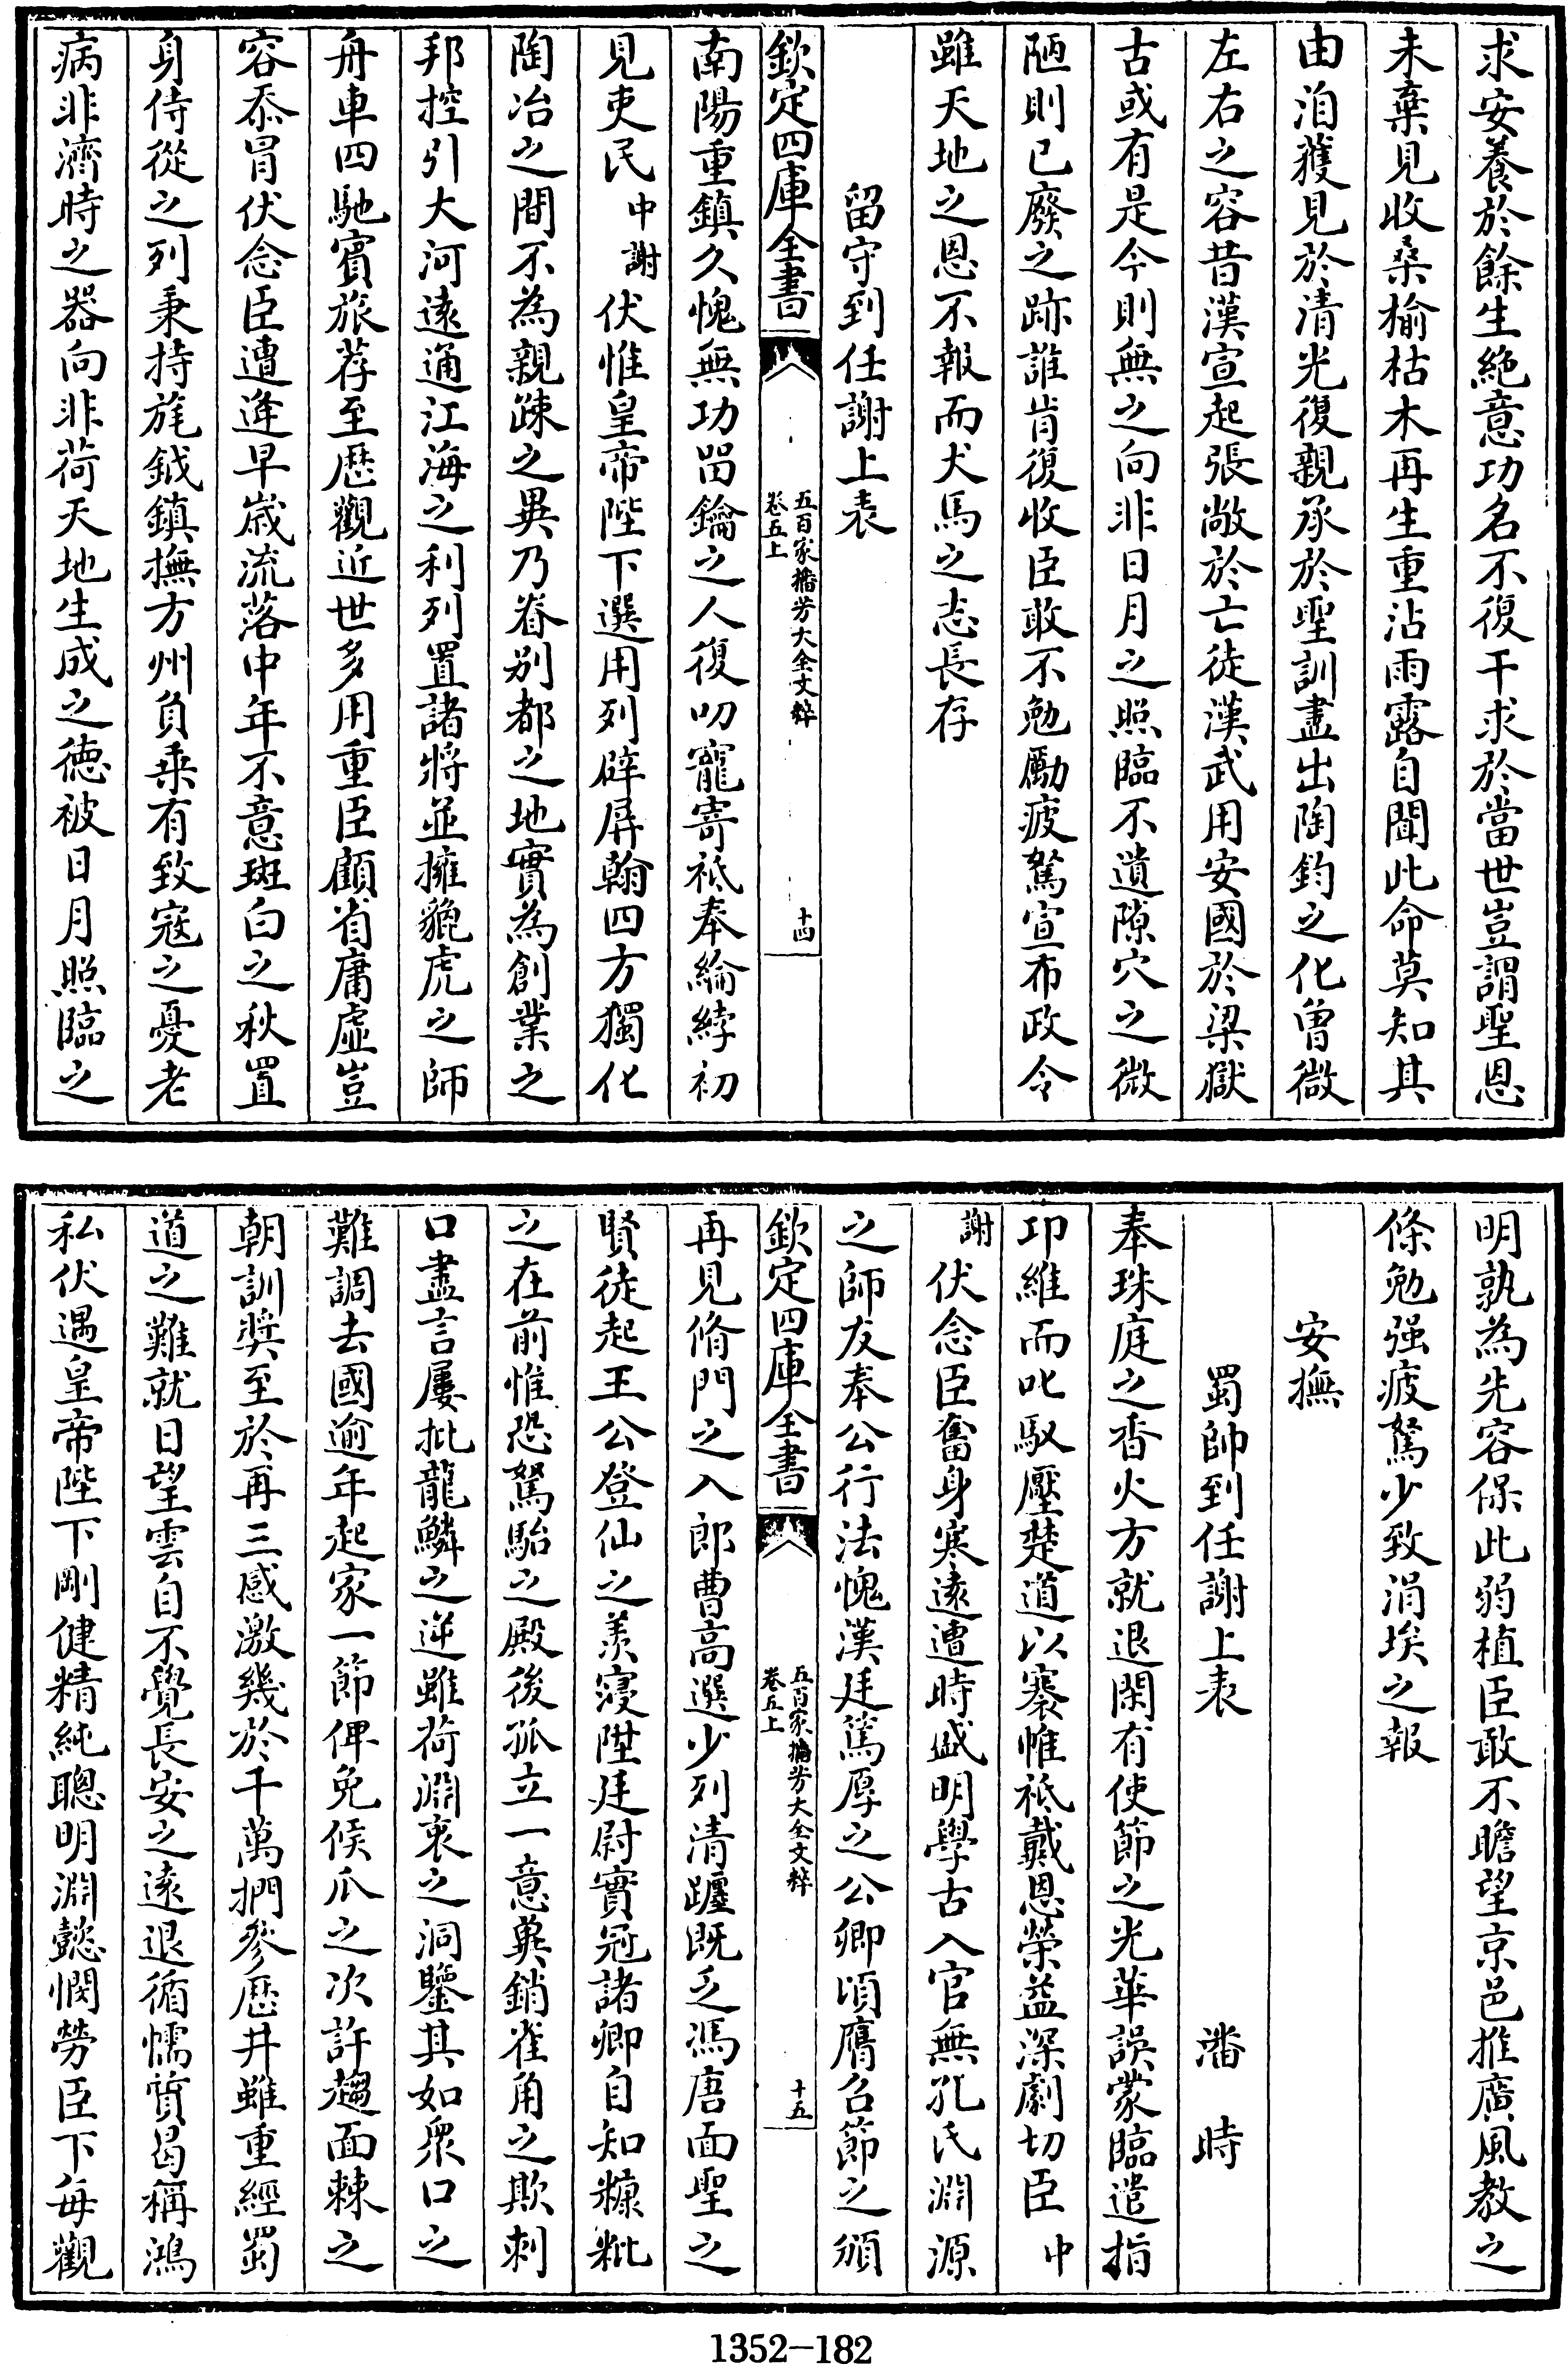 求安養於餘生絶意功名不復干求於當世豈謂聖恩
未棄見收桑榆枯木再生重沾雨露自聞此命莫知其
由洎獲見於清光復親承於聖訓盡出陶鈞之化曾微
左右之容昔漢宣起張敞於亡徒漢武用安國於梁獄
古或有是今則無之向非日月之照臨不遺隙穴之微
陋則已廢之跡誰肯復收臣敢不勉勵疲駑宣布政令
雖天地之恩不報而犬馬之志長存
留守到任謝上表
欽定四庫全書
五百家播芳大全文粹
卷五上
十四
南陽重鎮久愧無功留鑰之人復叨寵寄祗奉綸綍初
見吏民中謝伏惟皇帝陛下選用列辟屏翰四方獨化
陶冶之間不為親疎之異乃眷别都之地實為創業之
邦控引大河逺通江海之利列置諸將並擁貔虎之師
舟車四馳賓旅荐至歴觀近世多用重臣顧省庸虛豈
容忝冒伏念臣遭逄早嵗流落中年不意斑白之秋置
身侍從之列秉持旄鉞鎮撫方州負乗有致宼之憂老
病非濟時之器向非荷天地生成之徳被日月照臨之
明孰為先容保此弱植臣敢不瞻望京邑推廣風教之
條勉强疲駑少致涓埃之報
安撫
蜀帥到任謝上表 潘時
奉珠庭之香火方就退閑有使節之光華誤蒙臨遣指
卭維而叱馭壓楚道以褰帷祗戴恩榮益深劇切臣中
謝伏念臣奮身寒逺遭時盛明學古入官無孔氏淵源
之師友奉公行法愧漢廷篤厚之公卿頃膺召節之頒
欽定四庫全書
五百家播芳大全文粹
卷五上
十五
再見脩門之入郎曹高選少列清躔既乏馮唐面聖之
賢徒起王公登仙之羨寖陞廷尉實冠諸卿自知糠粃
之在前惟恐駑駘之殿後孤立一意兾銷雀角之欺刺
口盡言屢批龍鱗之逆雖荷淵衷之洞鑒其如衆口之
難調去國逾年起家一節俾免候瓜之次許趨面棘之
朝訓奬至於再三感激幾於千萬捫參歴井雖重經蜀
道之難就日望雲自不覺長安之逺退循懦質曷稱鴻
私伏遇皇帝陛下剛健精純聰明淵懿憫勞臣下每觀
1352-182